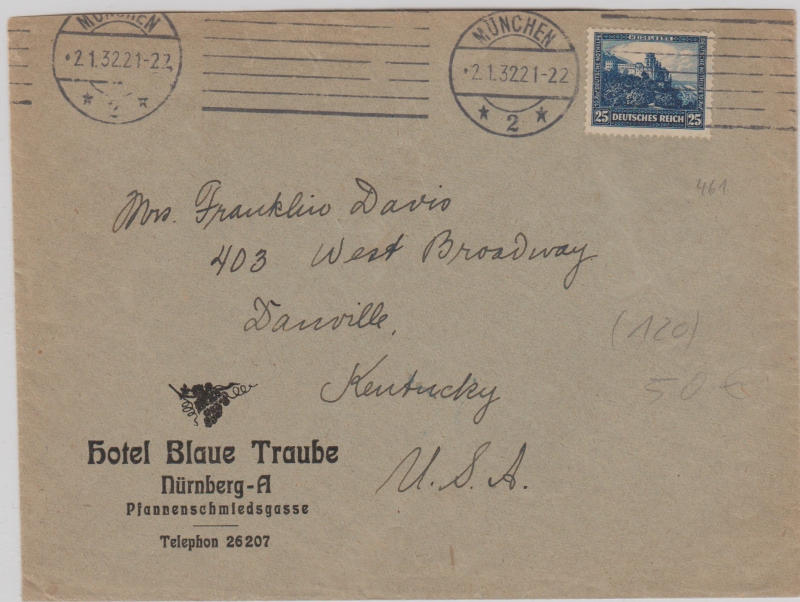 MÜNCHEN
* 2.1.32.21-22
* 2 *
MÜNCHEN
* 2.1.32.21-22
* 2 *
HEIDELBERG
25 DEUTSCHES REICH 25
461
Mrs. Franklin Davis
403 West Broadway
Danville,
Kentucky
U.S.A.
(120)
50 €
Hotel Blaue Traube
Nürnberg-A
Pfannenschmiedsgasse
Telephon 26207